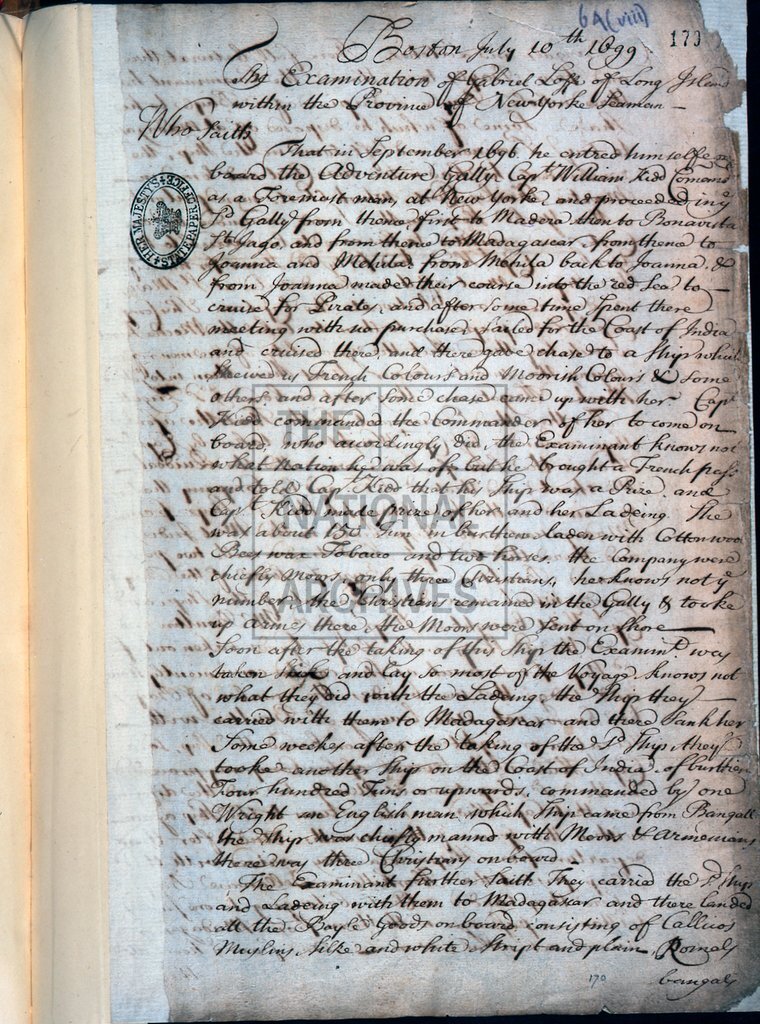 6A(viii)
173
Boston July 10th 1699
The Examination of Gabriel Loff of Long Island
within the Province of New Yorke Seaman
Who Saith
That in September 1696 he entred himselfe on
board the Adventure Gally Capt. William Kidd Comandr
as a Foremast man, at New Yorke and proceeded in ye
Sd. Gally from thence first to Madera then to Bonavista
St Jago, and from thence to Madagascar from thence to
Joanna and Mohila, from Mohila back to Joanna, &
from Joanna maded their course into the red Sea to
cruise for Pirates, and after some time spent there
meeting with no purchase, sailed for the Coast of India
and cruised there and there gave chase to a Ship which
shewed us French Colours and Moorish Colours & some
others and after some chase came up with her. Capt
Kidd commanded the Commander of her to come on
board, who accordingly did, the Examinant knows not
what nation he was of, but he brought a French pass
and told Capt. Kidd that his Ship was a Prize. and
Capt. Kidd made prize of her and her Ladeing. She
was about 150 Tun in burthen laden with Cotton wool
Bees wax Tobacco and two horses. the Company were
chiefly Moors, only three Christians, he knows not ye
number the Christians remained in the Gally & tooke
up armes there, the Moors were sent on shore
Soon after the taking of this Ship the Examint. was
taken sick and lay so most of the Voyage, knows not
what they did with the Ladeing, the Ship they
carried with them to Madagascar and there sank her
Some weekes after the taking of the Sd. Ship, they
tooke another ship on the Coast of India of burthen
Four hundred Tuns or upwards, commanded by one
Wright an English man, which Ship came from Bangall
the Ship was chiefly mannd with Moors & Armenians
there was three Christians on board.
The Examinant further saith They carried the Sd. Ship
and Ladeing with them to Madagascar and there landed
all the Bayle Goods on board consisting of Callicos
Muslins, silke and white stript and plain, Romals
bangals
170
HER MAJESTY'S STATE PAPER OFFICE
THE
NATIONAL
ARCHIVES